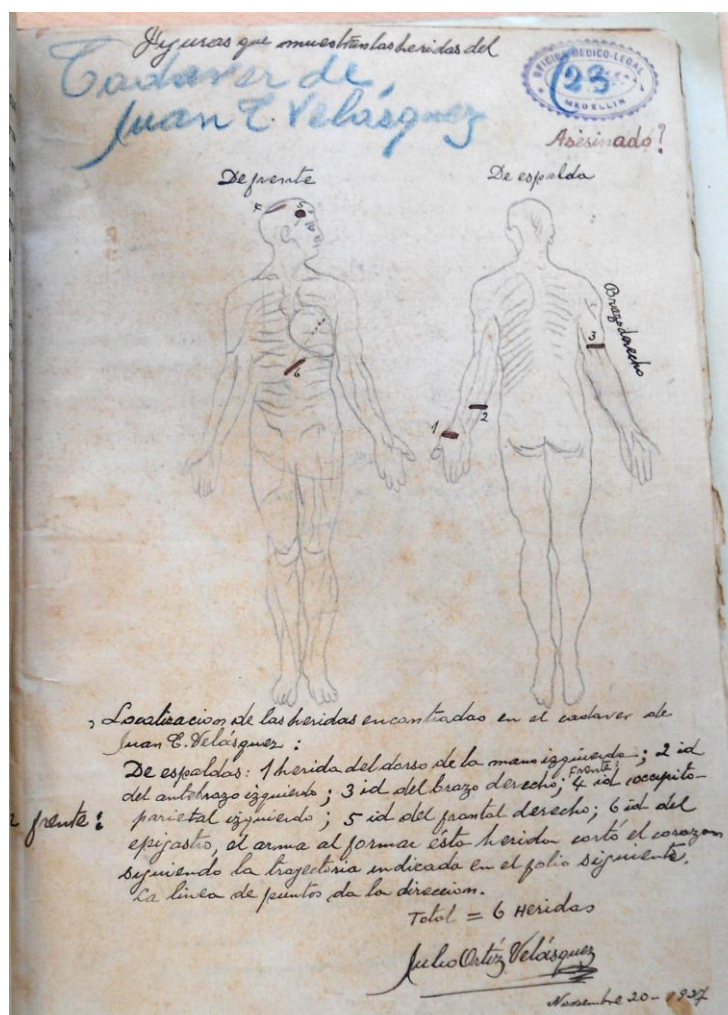 Figuras que muestran las heridas del
Cadaver de
Juan E. Velásquez
OFICINA MEDICO-LEGAL
23
MEDELLIN
Asesinado?
De frente
De espalda
4
5
6
Brazo derecho
3
2
1
Localizacion de las heridas encontradas en el cadaver de
Juan E. Velásquez:
De espaldas: 1 herida del dorso de la mano izquierda; 2 id
del antebrazo izquierdo; 3 id del brazo derecho; Frente: 4 id occipito-
frente: parietal izquierdo; 5 id del frontal derecho; 6 id del
epigastro, el arma al formar ésta herida cortó el corazon
siguiendo la trayectoria indicada en el folio siguiente.
La linea de puntos da la direccion.
Total = 6 Heridas
Julio Ortíz Velásquez
Noviembre 20 - 1927